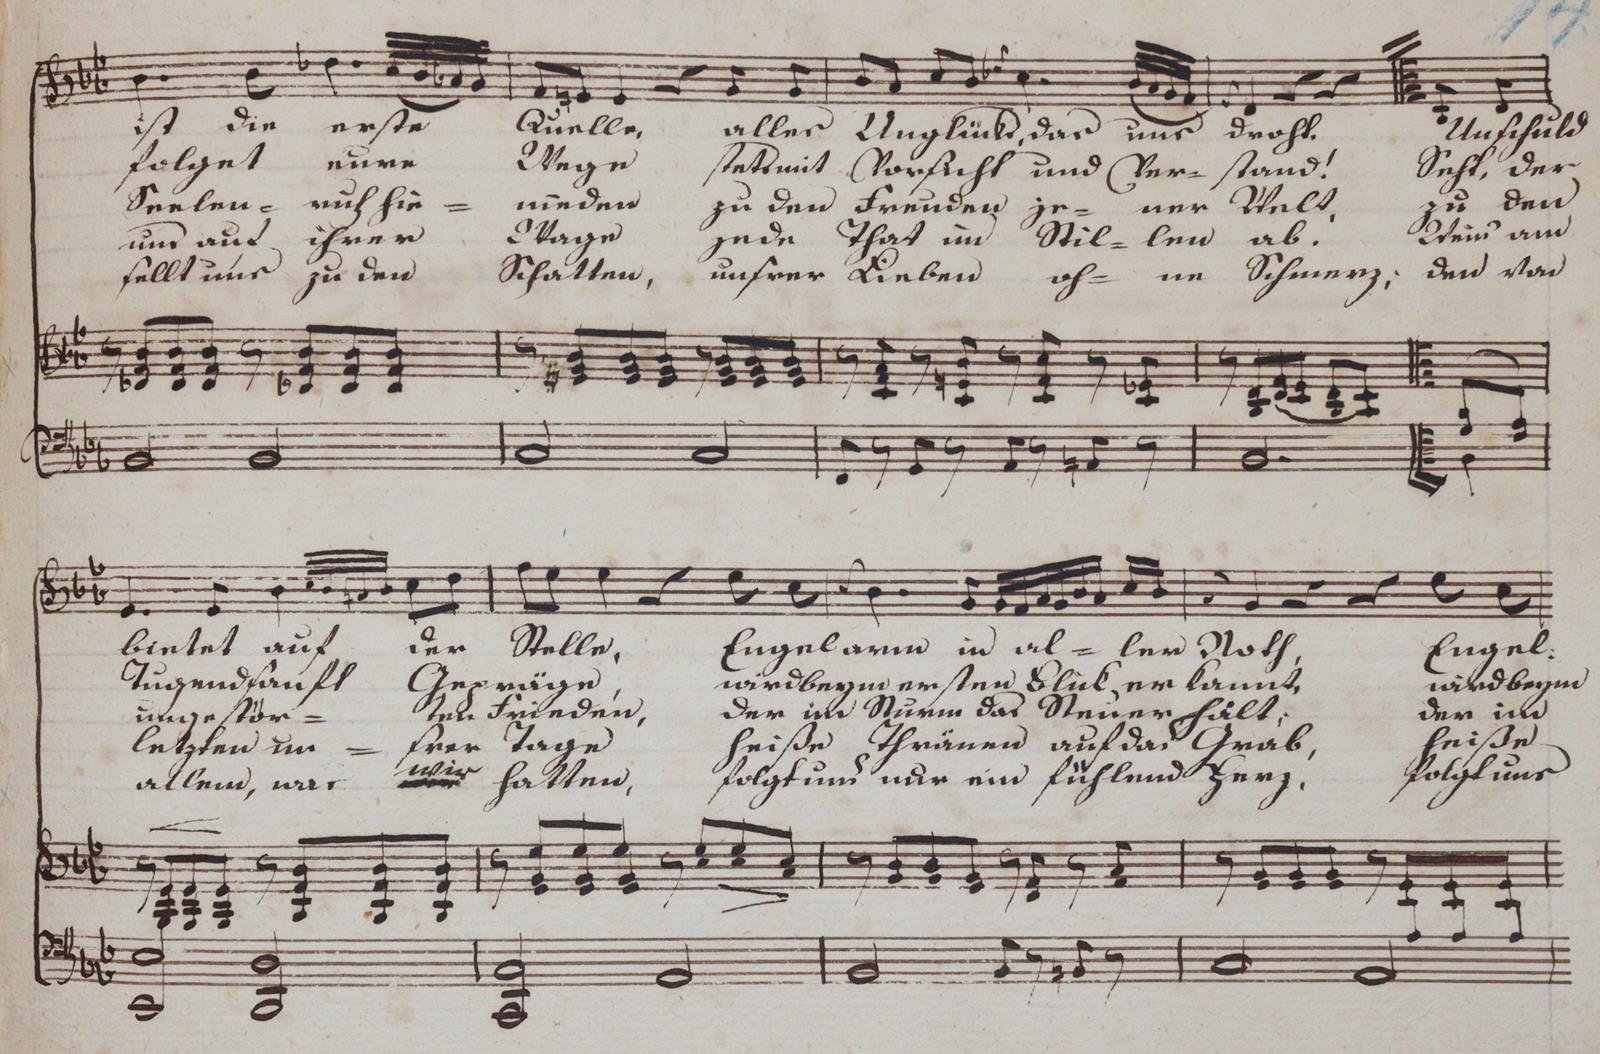 ist die erste Quelle, alles Unglücks, das uns droht. Unschuld
folget eure Wege stets mit Vorsicht und Ver- stand! Seht, der
Seelen- ruh hie- nieden zu den Freuden je- ner Welt, zu den
uns auf ihrer Wage jede That im Stil- len ab. Wein' am
fellt uns zu den Schatten, unsrer Lieben oh- ne Schmerz; den von
bietet auf der Stelle, Engelarm in al- ler Noth, Engel-
Tugend sanft Gepräge, wird beym ersten Blick erkannt, wird beym
ungestör- ten Frieden, der im Sturm das Steuer hält; der im
letzten un- srer Tage heiße Thränen auf das Grab, heiße
allem, was wir hatten, folgt uns nur ein fühlend Herz, folgt uns